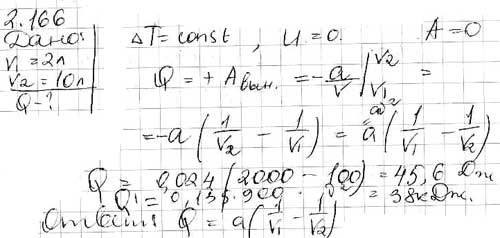 2.166
Дано:
V1 = 2л
V2 = 10л
Q-?
ΔT = const, U = 0. A = 0
Q = + Aвын. = -a/V |V2 V1 =
= -a (1/V2 - 1/V1) = a (1/V1 - 1/V2)
Q = 0,024 (2000 - 100) = 45,6 Дж
Q' = 0,135.900 = 38кДж.
Ответ: Q = a (1/V1 - 1/V2)